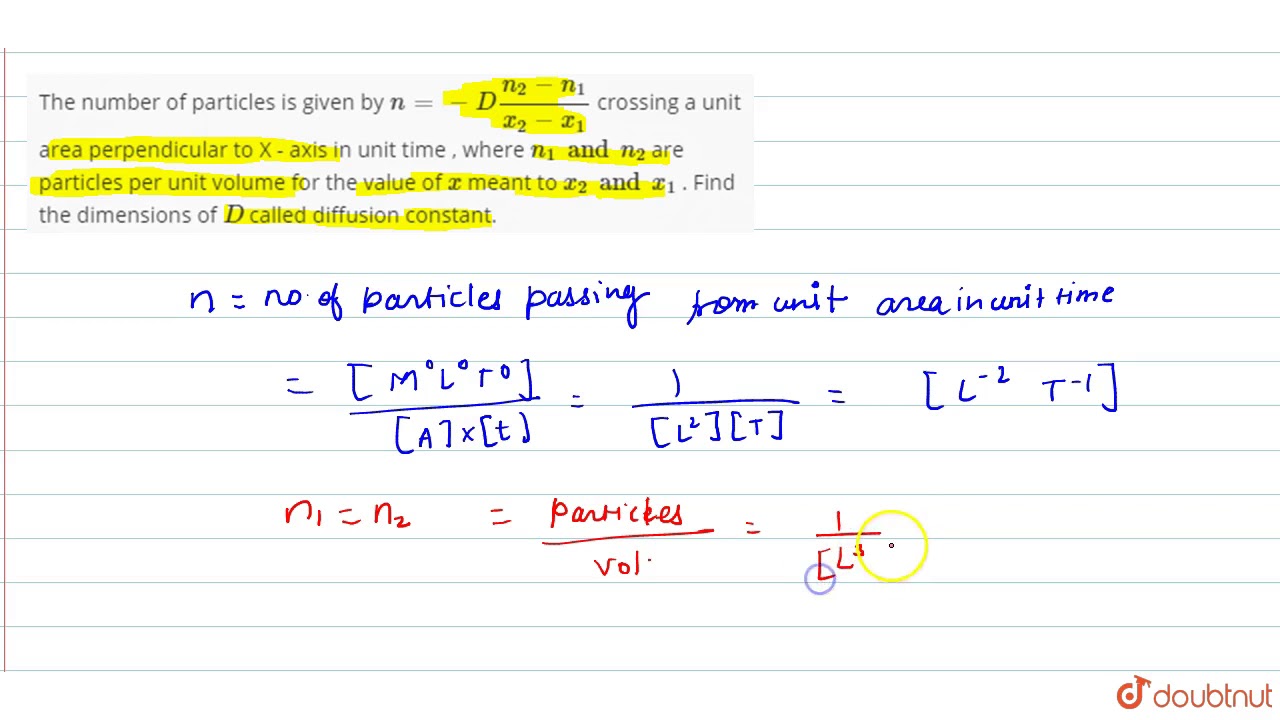 The number of particles is given by n = − D (n₂ − n₁)/(x₂ − x₁) crossing a unit
area perpendicular to X - axis in unit time , where n₁ and n₂ are
particles per unit volume for the value of x meant to x₂ and x₁ . Find
the dimensions of D called diffusion constant.
n = no. of particles passing from unit area in unit time
= [M⁰L⁰T⁰]/([A]×[t]) = 1/([L²][T]) = [L⁻² T⁻¹]
n₁ = n₂ = Particles/Vol. = 1/[L³
doubtnut